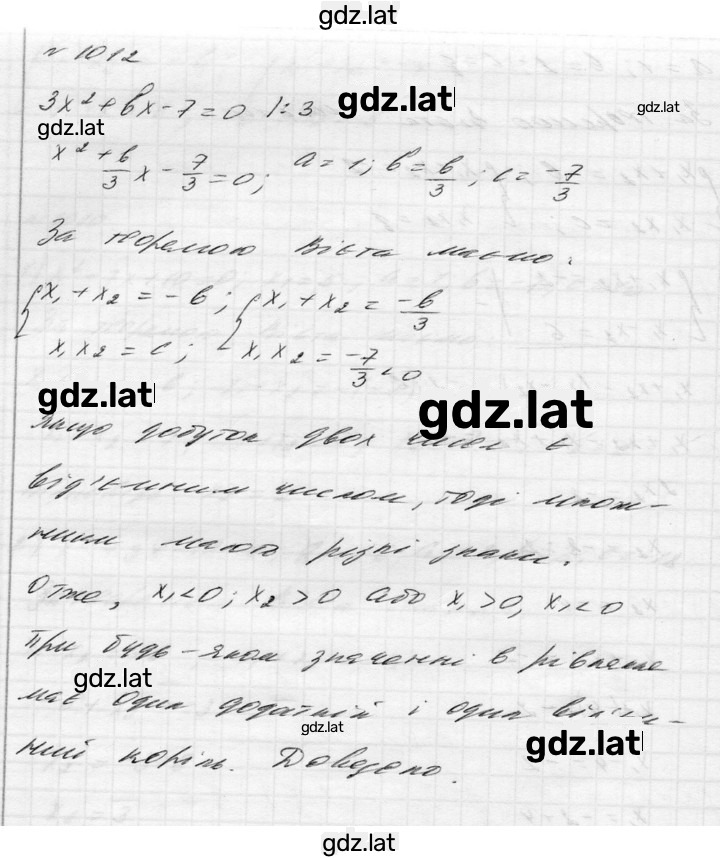 gdz.lat
№ 1012
3x² + bx - 7 = 0 /: 3
gdz.lat
gdz.lat
gdz.lat
x² + b/3 x - 7/3 = 0; a = 1; b = b/3; c = -7/3
За теоремою Вієта маємо:
{ x₁ + x₂ = -b; { x₁ + x₂ = -b/3
x₁x₂ = c; x₁x₂ = -7/3 < 0
gdz.lat
gdz.lat
Якщо добуток двох чисел є
від'ємним числом, тоді множ-
ники мають різні знаки.
Отже, x₁ < 0; x₂ > 0 або x₁ > 0, x₁ < 0
При будь-яком значенні b рівняння
gdz.lat
має один додатній і один від'єм-
gdz.lat
ний корінь. Доведено.
gdz.lat
gdz.lat